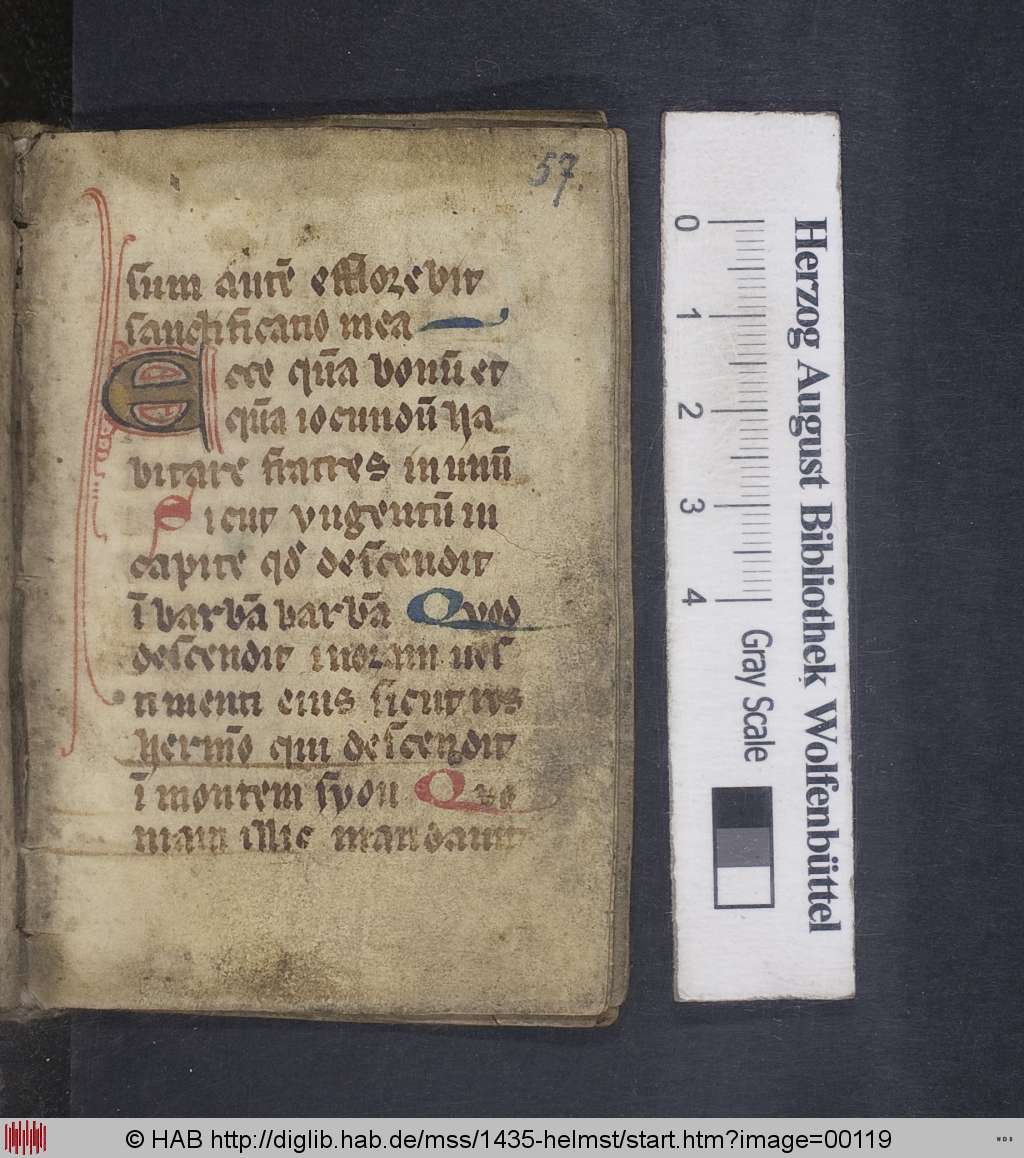 57.
sum autē efflorebit
sanctificatio mea
Ecce qūa bonū et
qūa iocundū ha
bitare fratres in unū
Sicut vngentū in
capite qd̄ descendit
ī barbā barbā Quod
descendit in oram ues
timenti eius sicut ros
hermō qui descendit
ī montem syon Quo
niam illic mandauit
0
1
2
3
4
Gray Scale
Herzog August Bibliothek Wolfenbüttel
© HAB http://diglib.hab.de/mss/1435-helmst/start.htm?image=00119